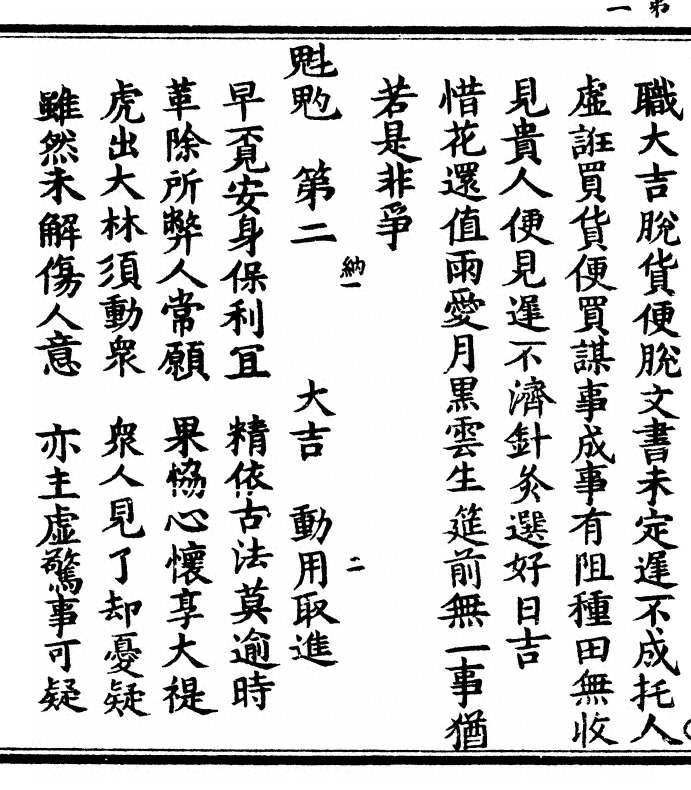 第一
職大吉脫貨便脫文書未定遲不成托人
虛誑買貨便買謀事成事有阻種田無收
見貴人便見遲不濟針灸選好日吉
惜花還值雨愛月黑雲生筵前無一事猶
若是非爭
魁魡 第二 納一 大吉 動用取進 二
早覔安身保利宜 精依古法莫逾時
革除所弊人常願 果恊心懷享大禔
虎出大林須動衆 衆人見了却憂疑
雖然未解傷人意 亦主虛驚事可疑